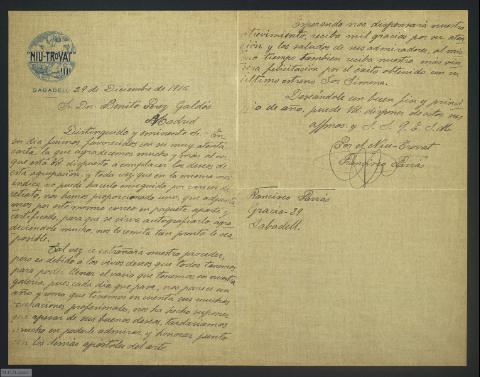 "NIU-TROVAT"
SABADELL
29 de Diciembre de 1915
S. Dn. Benito Perez Galdós
Madrid
Distinguido y eminente Sr. En
su dia fuimos favorecidos con su muy atenta
carta, la que agradecemos mucho y
está Vd. dispuesto a complacer los deseos de
esta agrupación, y toda vez que en la misma nos
indica no puede hacerlo enseguida por carecer de
retrato, nos hemos proporcionado uno, que adjunta-
mos por este mismo correo en paquete aparte y
certificado, para que se sirva autografiarlo, agra-
deciendole mucho, nos lo remita tan pronto le sea
posible.
Tal vez le extrañará nuestro proceder,
pero es debido a los vivos deseos que todos tenemos
para poder llenar el vacio que tenemos en nuestra
galeria, pues cada dia que pasa, nos parece un
año y como que tenemos en cuenta sus muchas
ocupaciones profesionales, nos ha hecho suponer
que apesar de sus buenos deseos, tardariamos
mucho en poderle admirar, y honrar junto
con los demás apóstoles del arte.
Esperando nos dispensará nuestro
atrevimiento, reciba mil gracias por su aten-
ción y los saludos de sus admiradores, al mis-
mo tiempo tambien reciba nuestra más sin-
cera felicitación por el éxito obtenido con su
último estreno Sor Simona.
Deseándole un buen fin y princi-
pio de año, puede Vd. disponer de estos sus
affmos y S. S. Q. E. S. M.
Por el Niu-Trovat
Francisco
Francisco
Gracia-39
Sabadell.